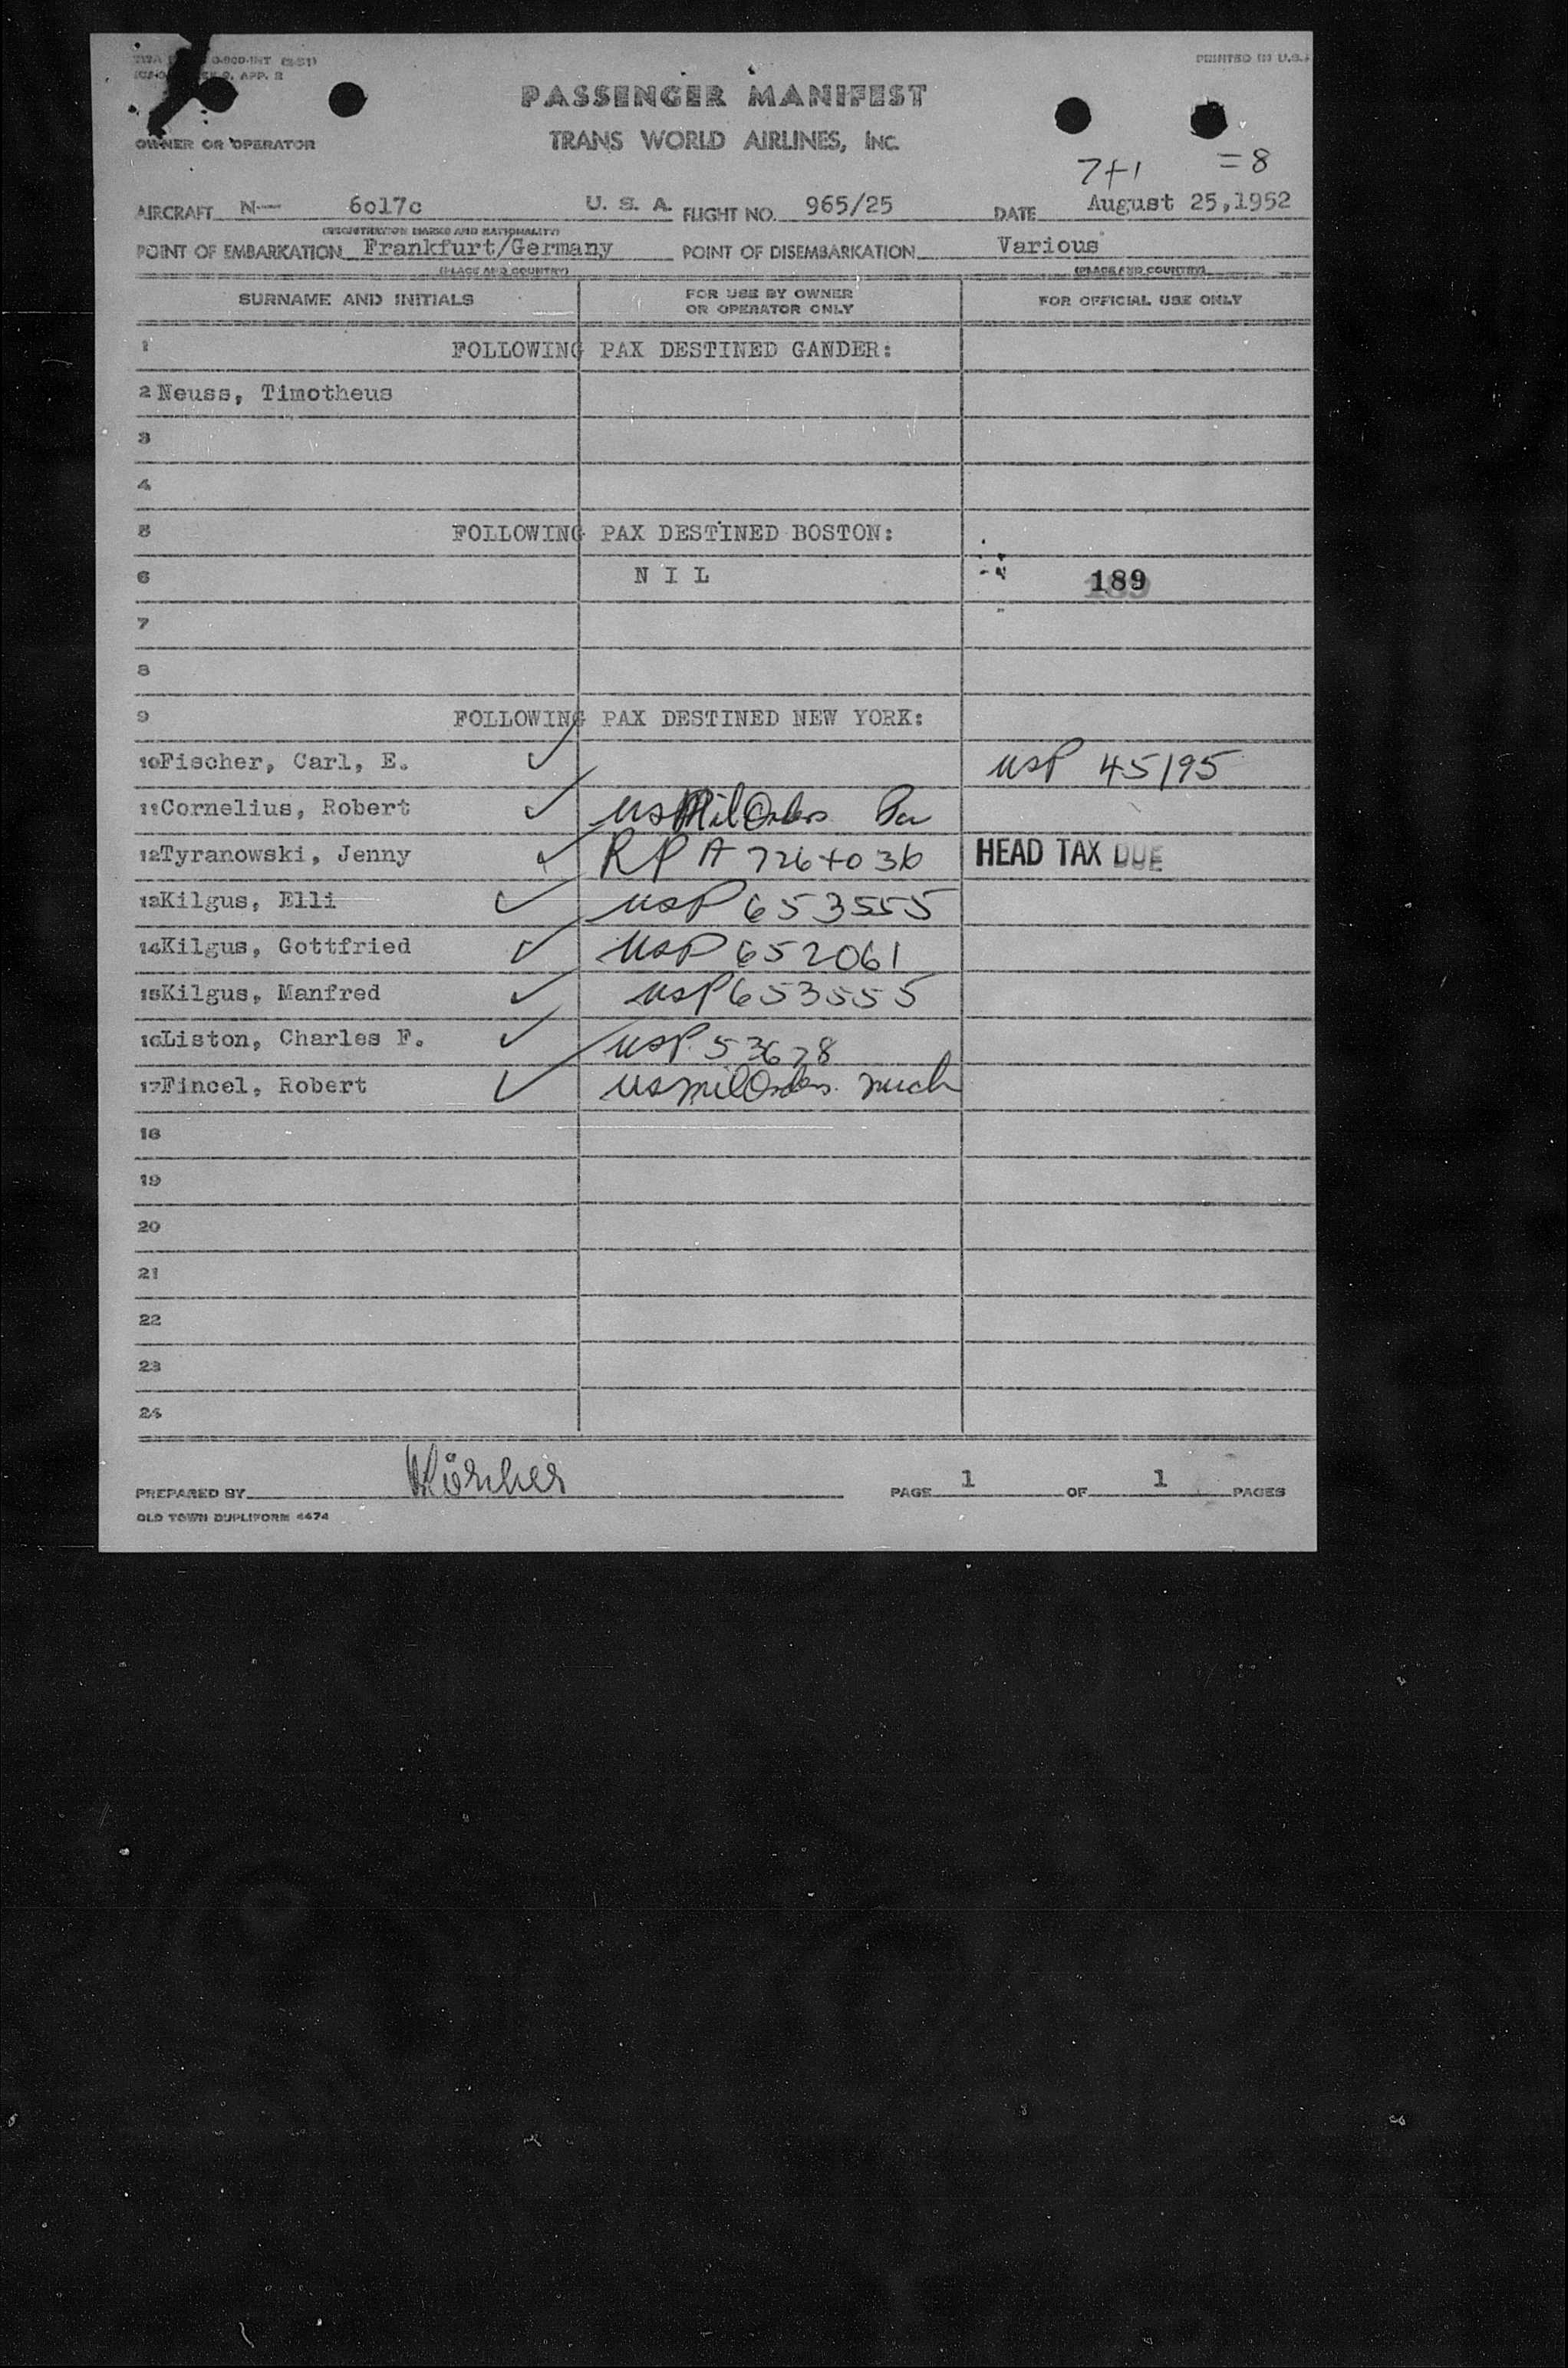 PRINTED IN U.S.A
PASSENGER MANIFEST
TRANS WORLD AIRLINES, INC.
OWNER OR OPERATOR
7+1 =8
AIRCRAFT N— 6o17c U. S. A. FLIGHT NO. 965/25 DATE August 25,1952
(REGISTRATION MARKS AND NATIONALITY)
POINT OF EMBARKATION Frankfurt/Germany POINT OF DISEMBARKATION Various
(PLACE AND COUNTRY) (PLACE AND COUNTRY)
SURNAME AND INITIALS FOR USE BY OWNER OR OPERATOR ONLY FOR OFFICIAL USE ONLY
1 FOLLOWING PAX DESTINED GANDER:
2 Neuss, Timotheus
3
4
5 FOLLOWING PAX DESTINED BOSTON:
6 N I L 189
7
8
9 FOLLOWING PAX DESTINED NEW YORK:
10 Fischer, Carl, E. ✓ USP 45195
11 Cornelius, Robert ✓ US Mil Orders
12 Tyranowski, Jenny ✓ RP A 726+036 HEAD TAX DUE
13 Kilgus, Elli ✓ USP 653555
14 Kilgus, Gottfried ✓ USP 652061
15 Kilgus, Manfred ✓ USP 653555
16 Liston, Charles F. ✓ USP. 53678
17 Fincel, Robert ✓ US mil Orders.
18
19
20
21
22
23
24
PREPARED BY PAGE 1 OF 1 PAGES
OLD TOWN DUPLIFORM 4474